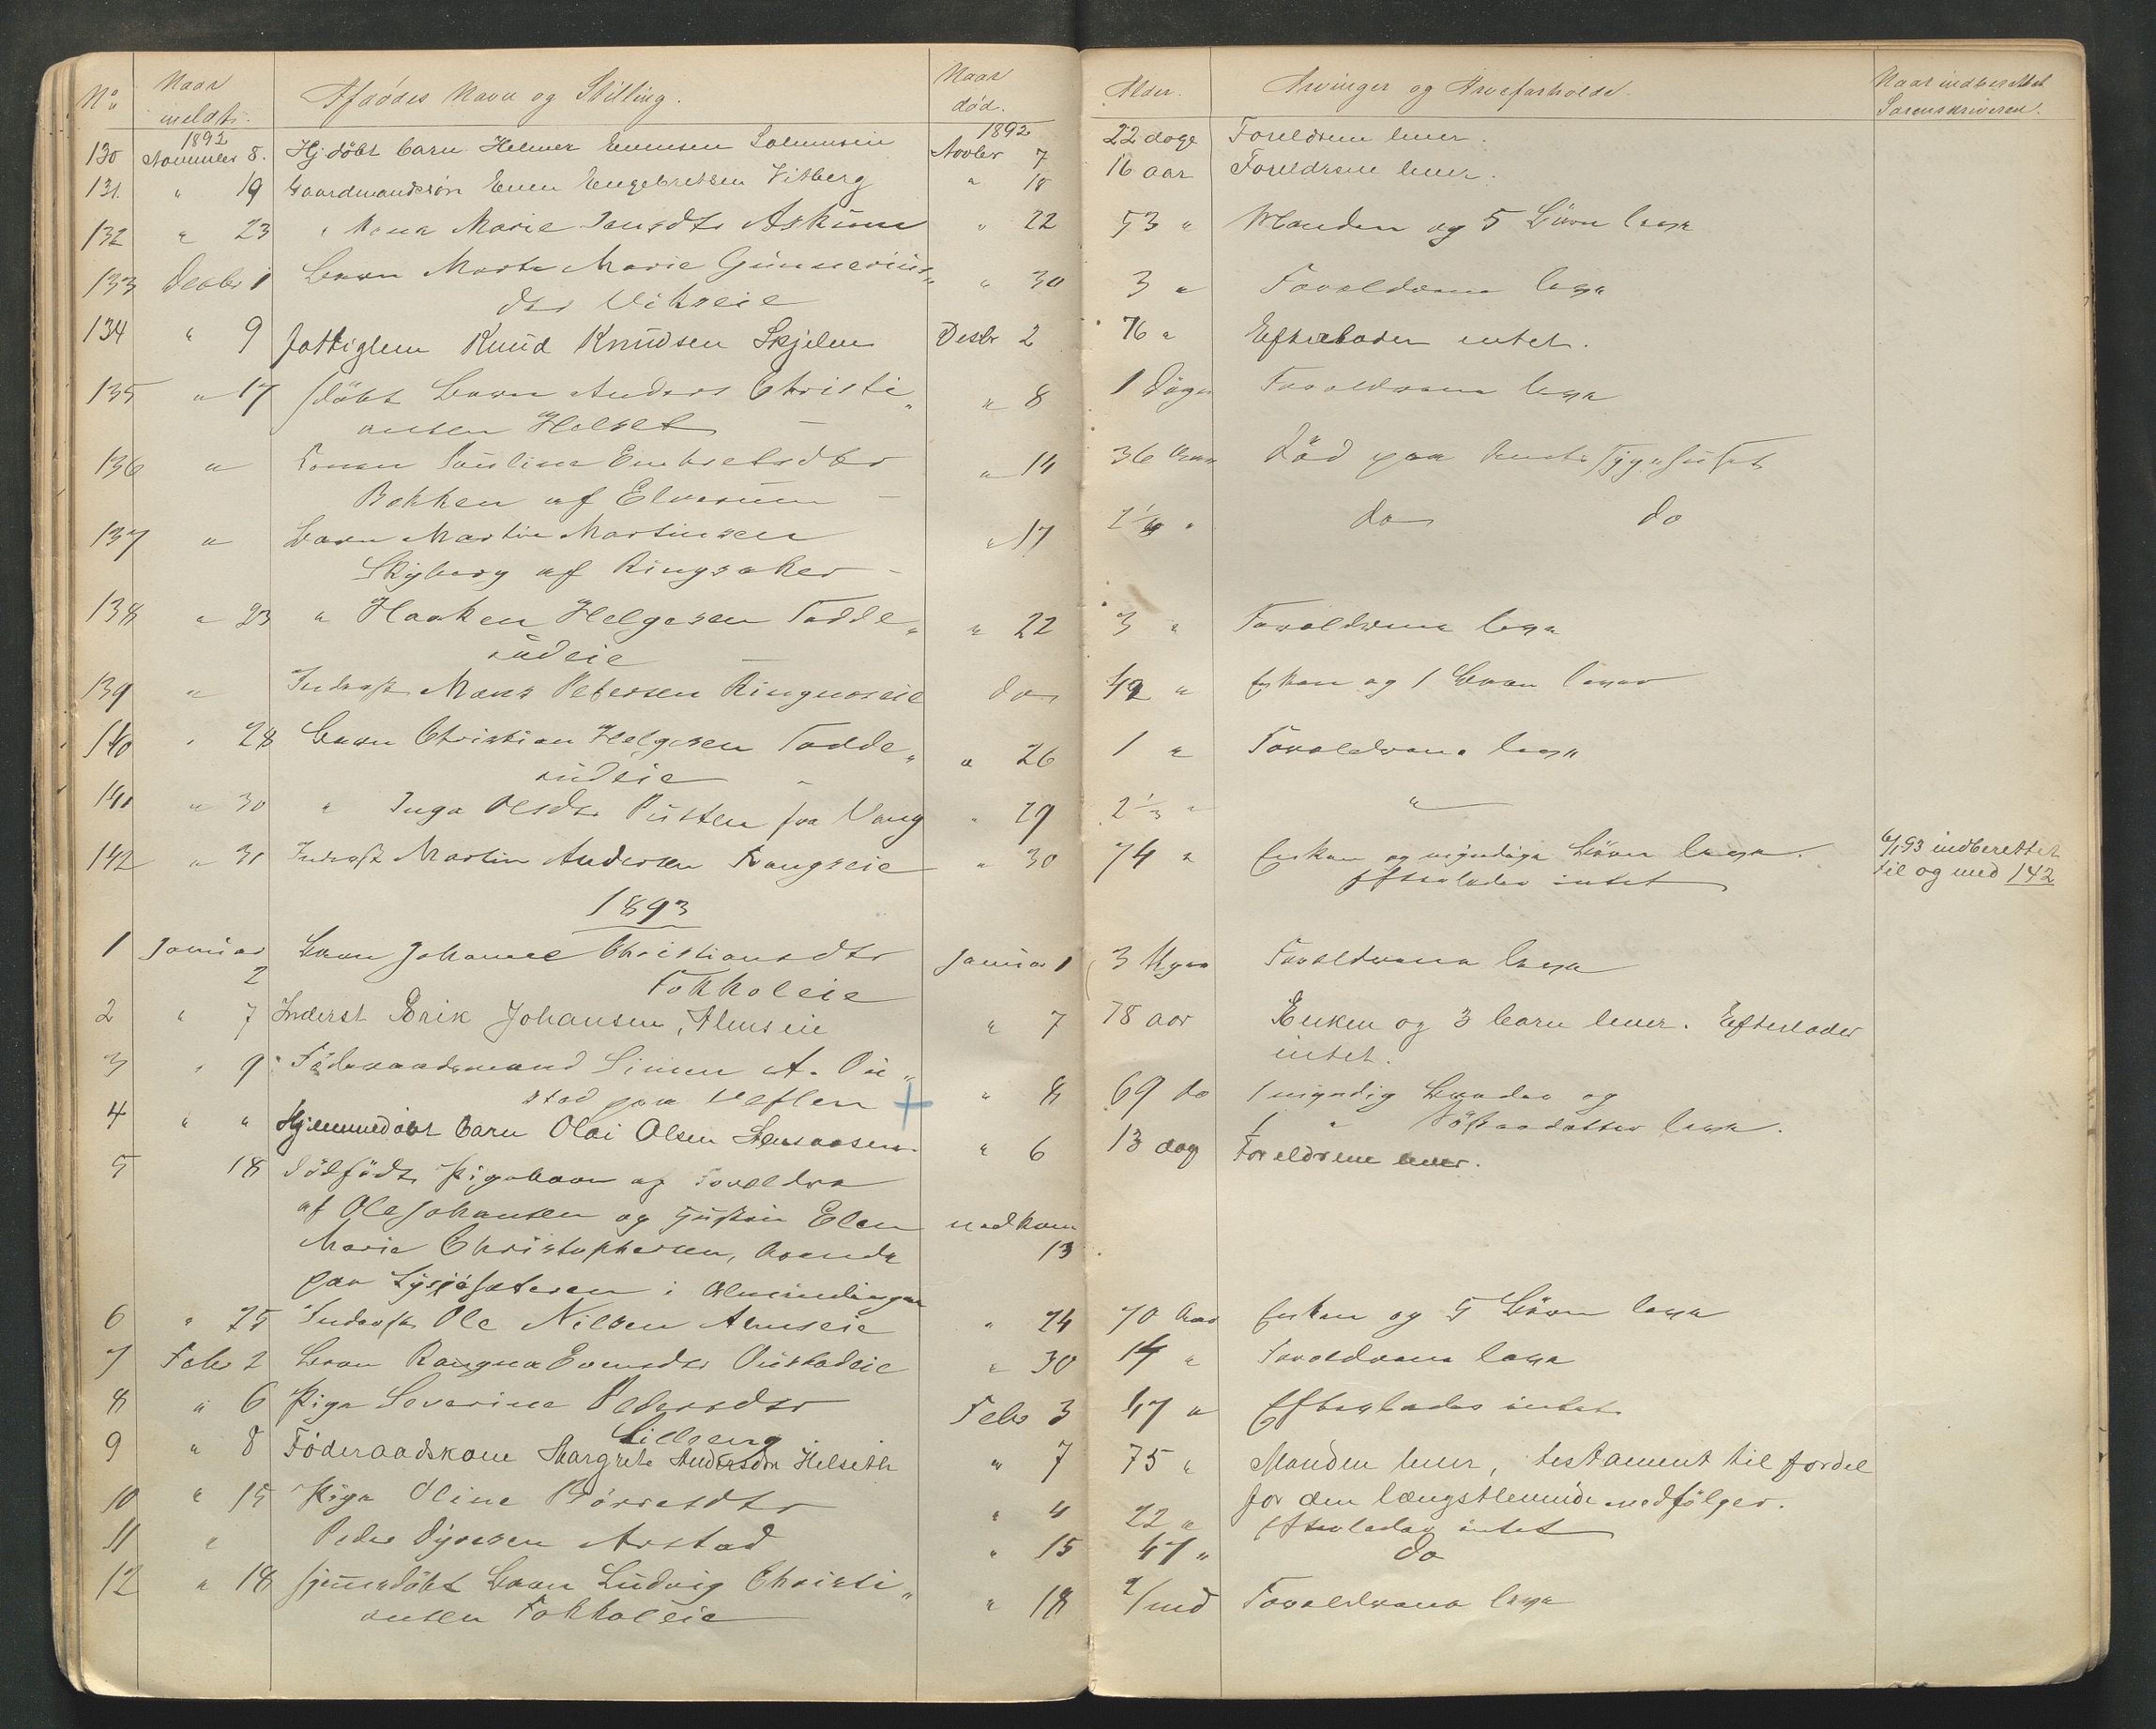 No Naar meldt. Afdødes Navn og Stilling. Naar død. Alder. Arvinger og Arveforholde. Naar indberettet Sorenskriveren.
1892 1892
130 November 8. Hj. døbt barn Helmer Evensen Novber 7 22 dage Foreldrene lever.
131. " 19 Gaardmandssøn Even Engebretsen Vitberg " 18 16 aar Foreldrene lever.
132 " 23 " Kona Marie Jensdtr Askum " 22 53 " Manden og 5 Börn leve
133 Decbr 1 Barn Marte Marie Gunnerius- " 30 3 " Forældrene leve
dtr Vikseie
134 " 9 Fattiglem Knud Knudsen Skjelve Desbr 2 76 " Efterlader intet.
135 " 17 döbt Barn Anders Christi- " 8 1 Döger Forældrene leve
ansen Helset
136 " Konen Pauline Embretsdtr " 14 36 Aar Död paa Amts Sygehuset
Bakken af Elverum
137 " Barn Martin Martinsen " 17 do do
Skyberg af Ringsaker
138 " 23 " Haaken Helgesen Todde- " 22 3 " Forældrene leve
rudeie
139 " Inderst Mons Petersen Ringnæseie do 42 " Enken og 1 Barn lever
140 " 28 Barn Christian Helgesen Todde- " 26 1 " Forældrene leve
rudeie
141 " 30 " Inga Olsdtr Pusten fra Vang " 29 2 1/3 " "
142 " 31 Inderst Martin Andersen Frangseie " 30 74 " Enken og myndige Börn leve. 6/1 93 indberettet
Efterlader intet til og med 142
1893
1 Januar 2 Barn Johanne Christiansdtr Januar 1 3 Uger Forældrene leve
Fokholeie
2 " 7 Inderst Erik Johansen, Almseie " 7 78 aar Enken og 3 barn lever. Efterlader
intet.
3 " 9 Föderaadsmand Simen A. Ou- " 8 69 do 1 myndig Broder og
stad paa Veflen + 1 " Søsterdatter leve.
4 " " Hjemmedöbt barn Olai Olsen " 6 13 dag Foreldrene lever.
5 18 Dödfödt Pigebarn af Forældre
af Ole Johansen og Hustru Elen nedkom
Marie Christophersen, boende 13
paa Lysjøsæteren i Almindingen
6 " 25 Inderst Ole Nilsen Almseie " 24 70 Aar Enken og 5 Börn leve
7 Febr 2 Barn Rangna Evensdtr Oustadeie " 30 14 " Forældrene leve
8 " 6 Pige Severine Pedersdtr Febr 3 47 " Efterlader intet
Lilleeng
9 " 8 Föderaadskone Margrete Andersdtr Helseth " 7 75 " Manden lever, testament til fordel
for den længstlevende medfölger.
10 " 15 Pige Oline Börresdtr " 4 22 " Efterlader intet
11 " Peder Syversen Arstad " 15 47 " do
12 " 18 Hjemmedöbt Barn Ludvig Christi- " 18 Forældrene leve
ansen Fokholeie